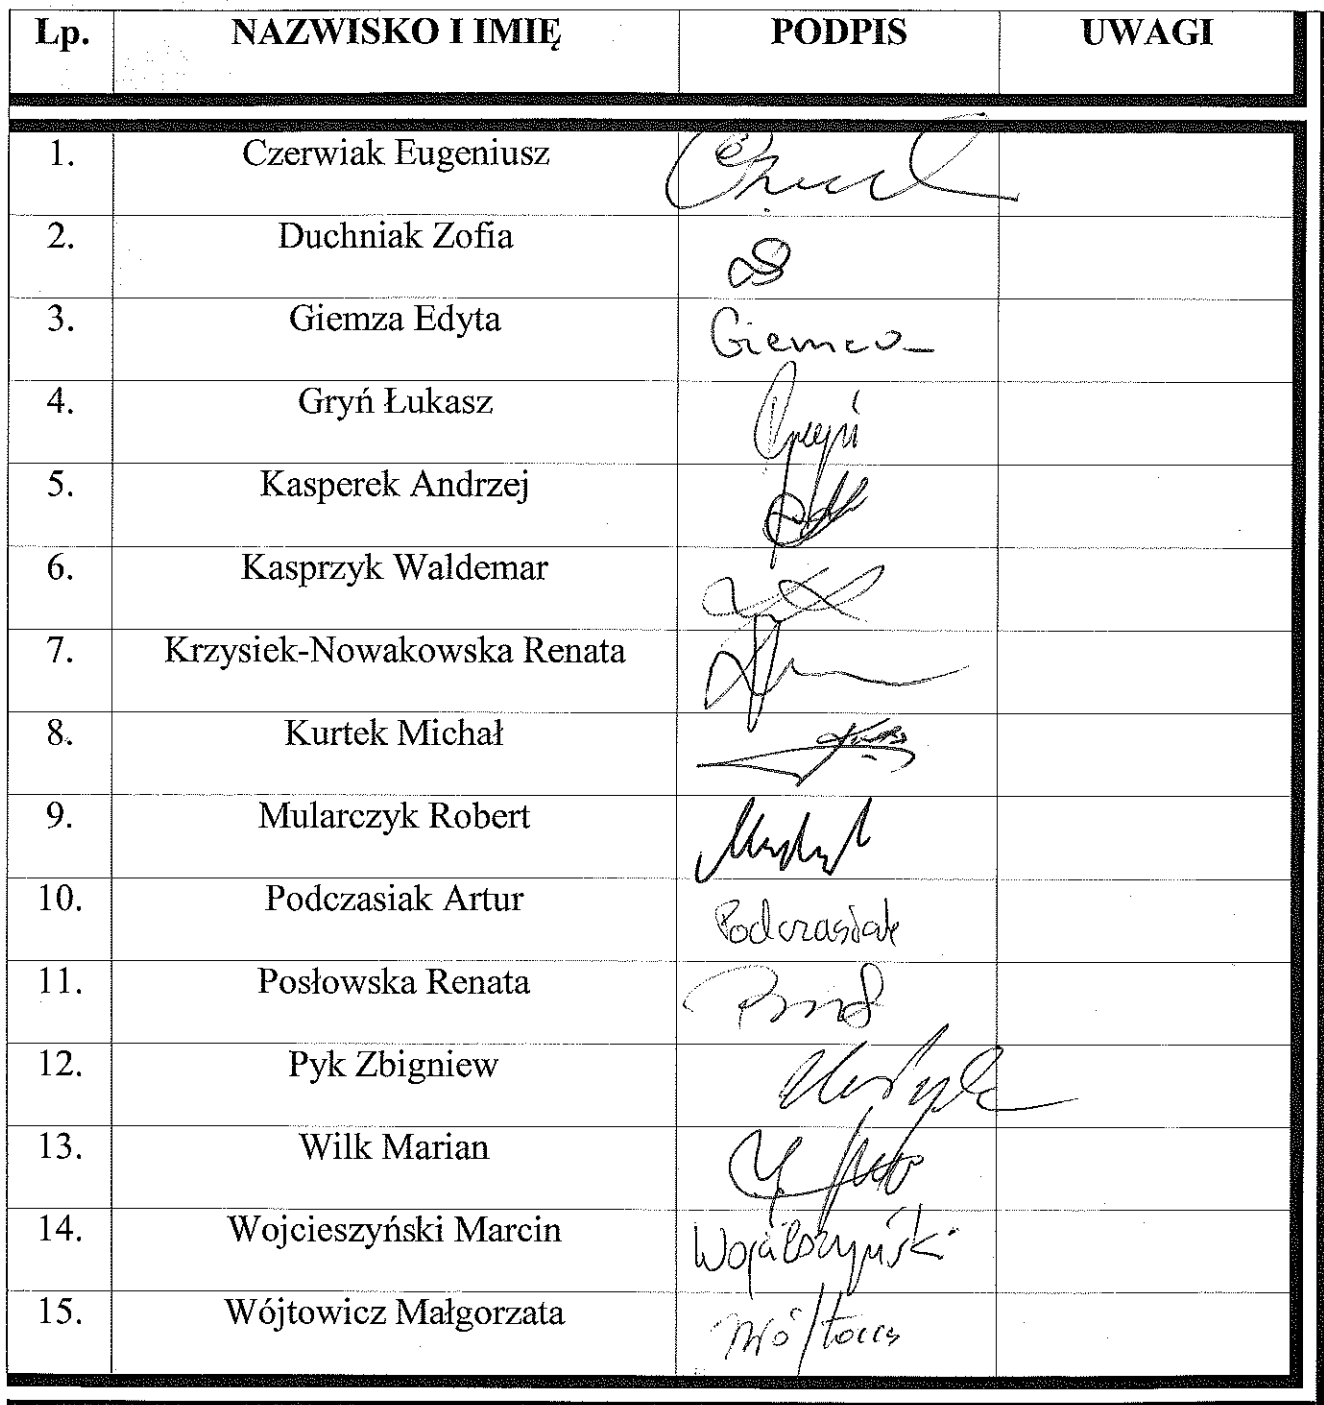 Lp. NAZWISKO I IMIĘ PODPIS UWAGI
1. Czerwiak Eugeniusz
2. Duchniak Zofia
3. Giemza Edyta Giemza
4. Gryń Łukasz Gryń
5. Kasperek Andrzej
6. Kasprzyk Waldemar
7. Krzysiek-Nowakowska Renata
8. Kurtek Michał
9. Mularczyk Robert
10. Podczasiak Artur Podczasiak
11. Posłowska Renata
12. Pyk Zbigniew
13. Wilk Marian
14. Wojcieszyński Marcin Wojcieszyński
15. Wójtowicz Małgorzata